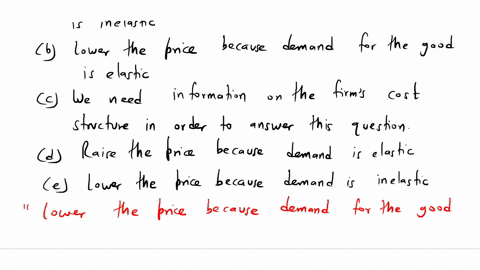 is inelastic
(b) Lower the price because demand for the good
is elastic
(c) We need information on the firm's cost
structure in order to answer this question.
(d) Raise the price because demand is elastic
(e) Lower the price because demand is inelastic
" Lower the price because demand for the good